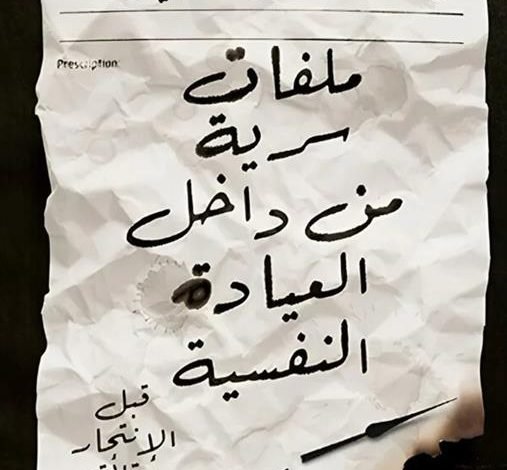 Prescription:
ملفات
سرية
من داخل
العيادة
النفسية
قبل
الإنتحار